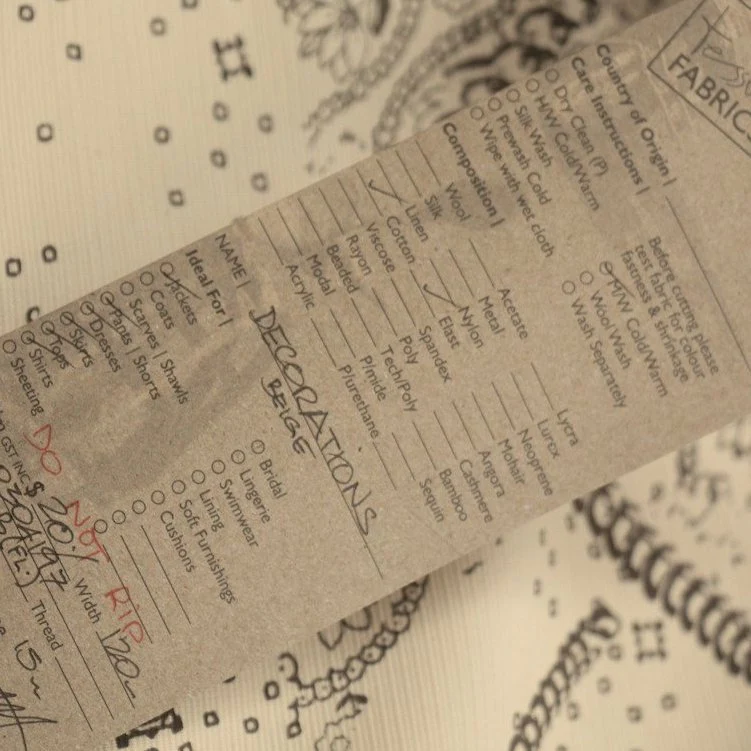 Tessu
FABRIC
Country of Origin |
Care Instructions |
Dry Clean (P)
H/W Cold/Warm
Silk Wash
Prewash Cold
Wipe with wet cloth
Before cutting please
test fabric for colour
fastness & shrinkage
H/W Cold/Warm
Wool Wash
Wash Separately
Composition |
Wool
Silk
Linen
Cotton
Viscose
Rayon
Beaded
Modal
Acrylic
Acetate
Metal
Nylon
Elast
Spandex
Poly
Tech/Poly
P/mide
P/urethane
Lycra
Lurex
Neoprene
Mohair
Angora
Cashmere
Bamboo
Sequin
NAME | DECORATIONS
BEIGE
Ideal For |
Jackets
Coats
Scarves | Shawls
Pants | Shorts
Dresses
Skirts
Tops
Shirts
Sheeting
Bridal
Lingerie
Swimwear
Lining
Soft Furnishings
Cushions
DO NOT RIP
GST INC $ 20./ Width 120
Thread
15